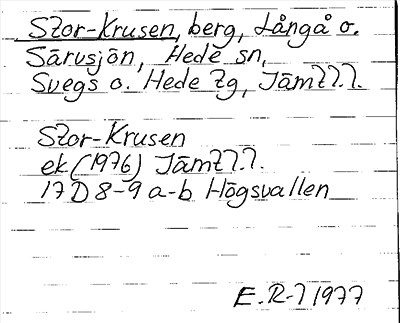 Stor-Krusen, berg, Långå o.
Särvsjön, Hede sn,
Svegs o. Hede tg, Jämtl.l.
Stor-Krusen
ek (1976) Jämtl.l.
17D 8-9 a-b Högsvallen
E. R-l 1977